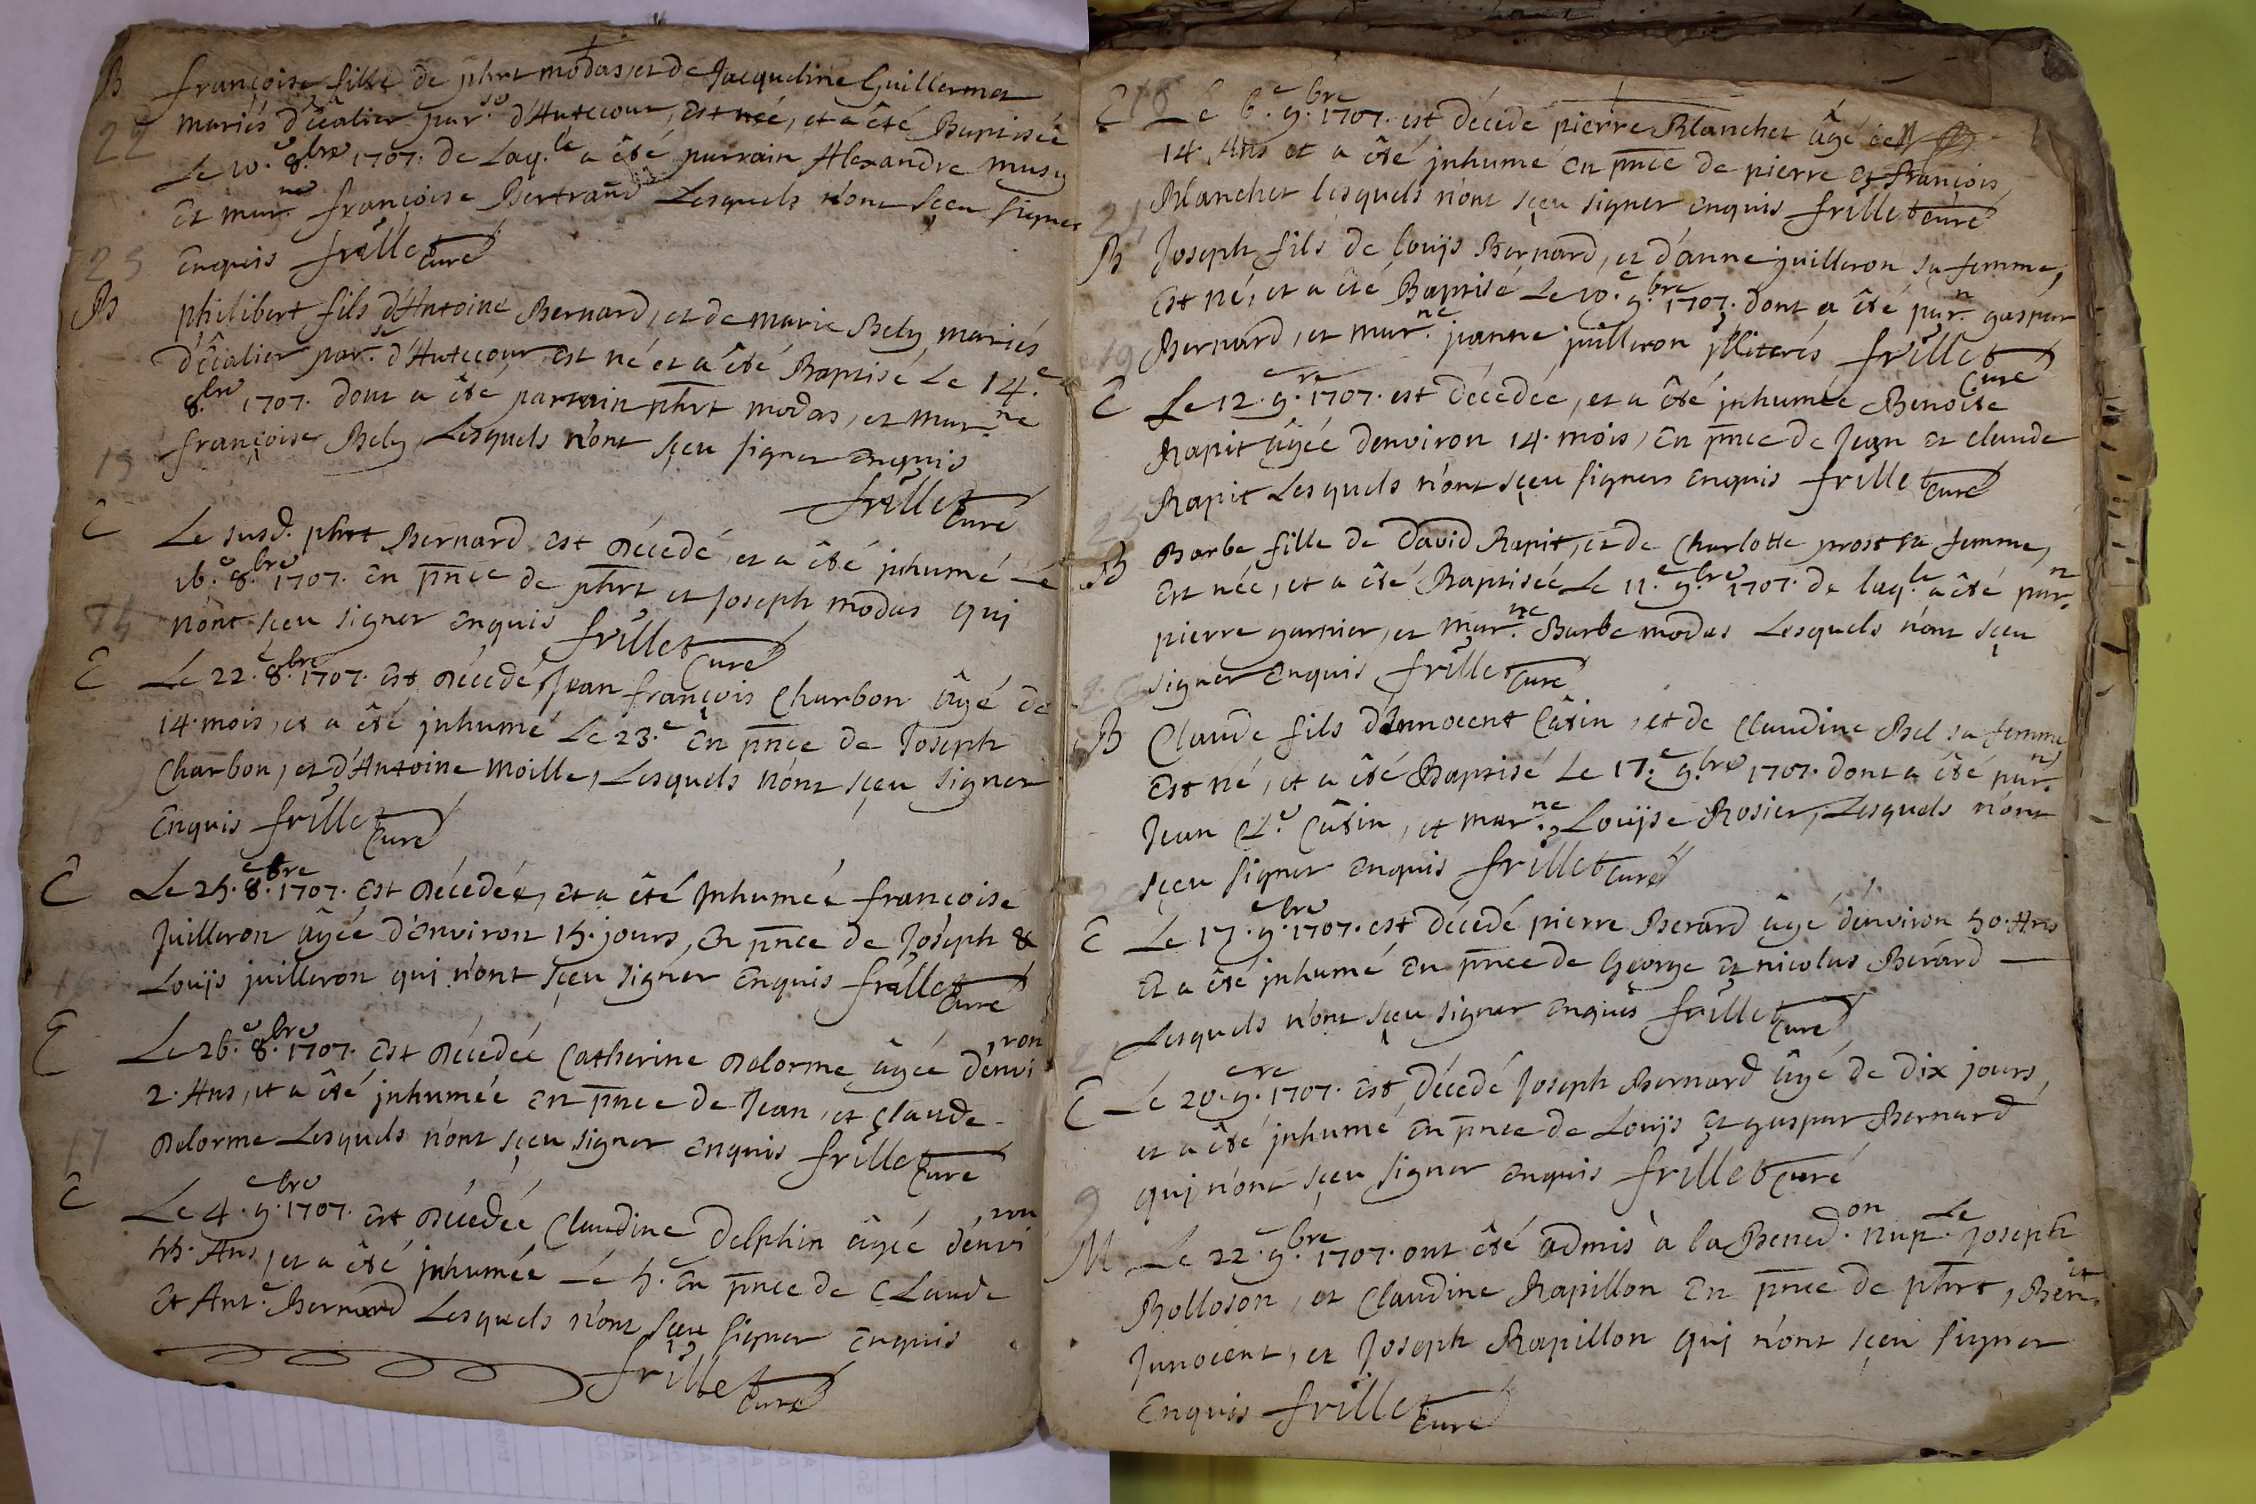 B françoise fille de phrt modas, et de Jacqueline Guillermet
22 mariés d'écalier par.se d'Hautecour, est née, et a êté Baptisée
Le 10.e 8.bre 1707. de Laq.le a êté parrain Alexandre musy
Et mar.ne françoise Bertrand Lesquels n'ont sçeu signer
25 enquis frillet curé
B philibert fils d'Antoine Bernard, et de marie Bely mariés
d'écalier par.se d'Hautecour est né et a êté Baptisé Le 14.e
8.bre 1707. dont a êté parrain phrt modas, et mar.ne
françoise Bely Lesquels n'ont sçeu signer enquis
frillet curé
E Le susd. phrt Bernard est décedé, et a êté jnhumé Le
16.e 8.bre 1707. en pnce de phrt et Joseph modas qui
n'ont sçeu signer enquis frillet curé
E Le 22.e 8.bre 1707. est décedé Jean françois Charbon âgé de
14. mois, et a êté jnhumé Le 23.e en pnce de Joseph
Charbon, et d'Antoine Moille, Lesquels n'ont sçeu signer
enquis frillet curé
E Le 25.e 8.bre 1707. est décedée, et a êté jnhumée françoise
Juilleron âgée d'environ 15. jours, en pnce de Joseph &
Louijs juilleron qui n'ont sçeu signer enquis frillet curé
E Le 26.e 8.bre 1707. est décedée Catherine Delorme âgée d'environ
2. Ans, et a êté jnhumée en pnce de Jean, et Claude
Delorme Lesquels n'ont sçeu signer enquis frillet curé
17
E Le 4.e 9.bre 1707. est décedée Claudine Delphin âgée d'environ
55. Ans, et a êté jnhumée Le 5.e en pnce de CLaude
et Ant.e Bernard Lesquels n'ont sçeu signer enquis
frillet curé
E Le 6.e 9.bre 1707. est décedé pierre Blanchet âgé de
14. Ans et a êté jnhumé en pnce de pierre et françois
Blanchet lesquels n'ont sçeu signer enquis frillet curé
B Joseph fils de louijs Bernard, et d'anne juilleron sa femme,
Est né, et a êté Baptisé Le 10.e 9.bre 1707. dont a êté par.n gaspar
Bernard, et mar.ne jeanne juilleron jlliterés frillet
curé
E Le 12.e 9.re 1707. est décedée, et a êté jnhumée Benoite
Rapit âgée d'environ 14. mois, en pnce de Jean et claude
Rapit Lesquels n'ont sçeu signer enquis frillet curé
B Barbe fille de David Rapit, et de Charlotte prost sa femme,
Est née, et a êté Baptisée Le 11.e 9.bre 1707. de laq.le a êté par.n
pierre garnier, et mar.ne Barbe modas Lesquels n'ont sçeu
signer enquis frillet curé
B Claude fils d'Jnnocent Câtin, et de Claudine Bel sa femme
Est né, et a êté Baptisé Le 17.e 9.bre 1707. dont a êté par.n
Jean Cl.e Câtin, et mar.ne Louijse Rosier, Lesquels n'ont
sçeu signer enquis frillet curé
E Le 17.e 9.bre 1707. est décedé pierre Berard âgé d'environ 50. Ans
Et a êté jnhumé en pnce de George et nicolas Berard
Lesquels n'ont sçeu signer enquis frillet curé
E Le 20.e 9.re 1707. est décedé Joseph Bernard âgé de dix jours,
et a êté jnhumé en pnce de Louijs et gaspar Bernard
qui n'ont sçeu signer enquis frillet curé
9
M Le 22.e 9.bre 1707. ont êté admis à la Bened.on nup.le Joseph
Bolloson, et Claudine Rapillon en pnce de phrt, Ben.it
Jnnocent, et Joseph Rapillon qui n'ont sçeu signer
enquis frillet curé